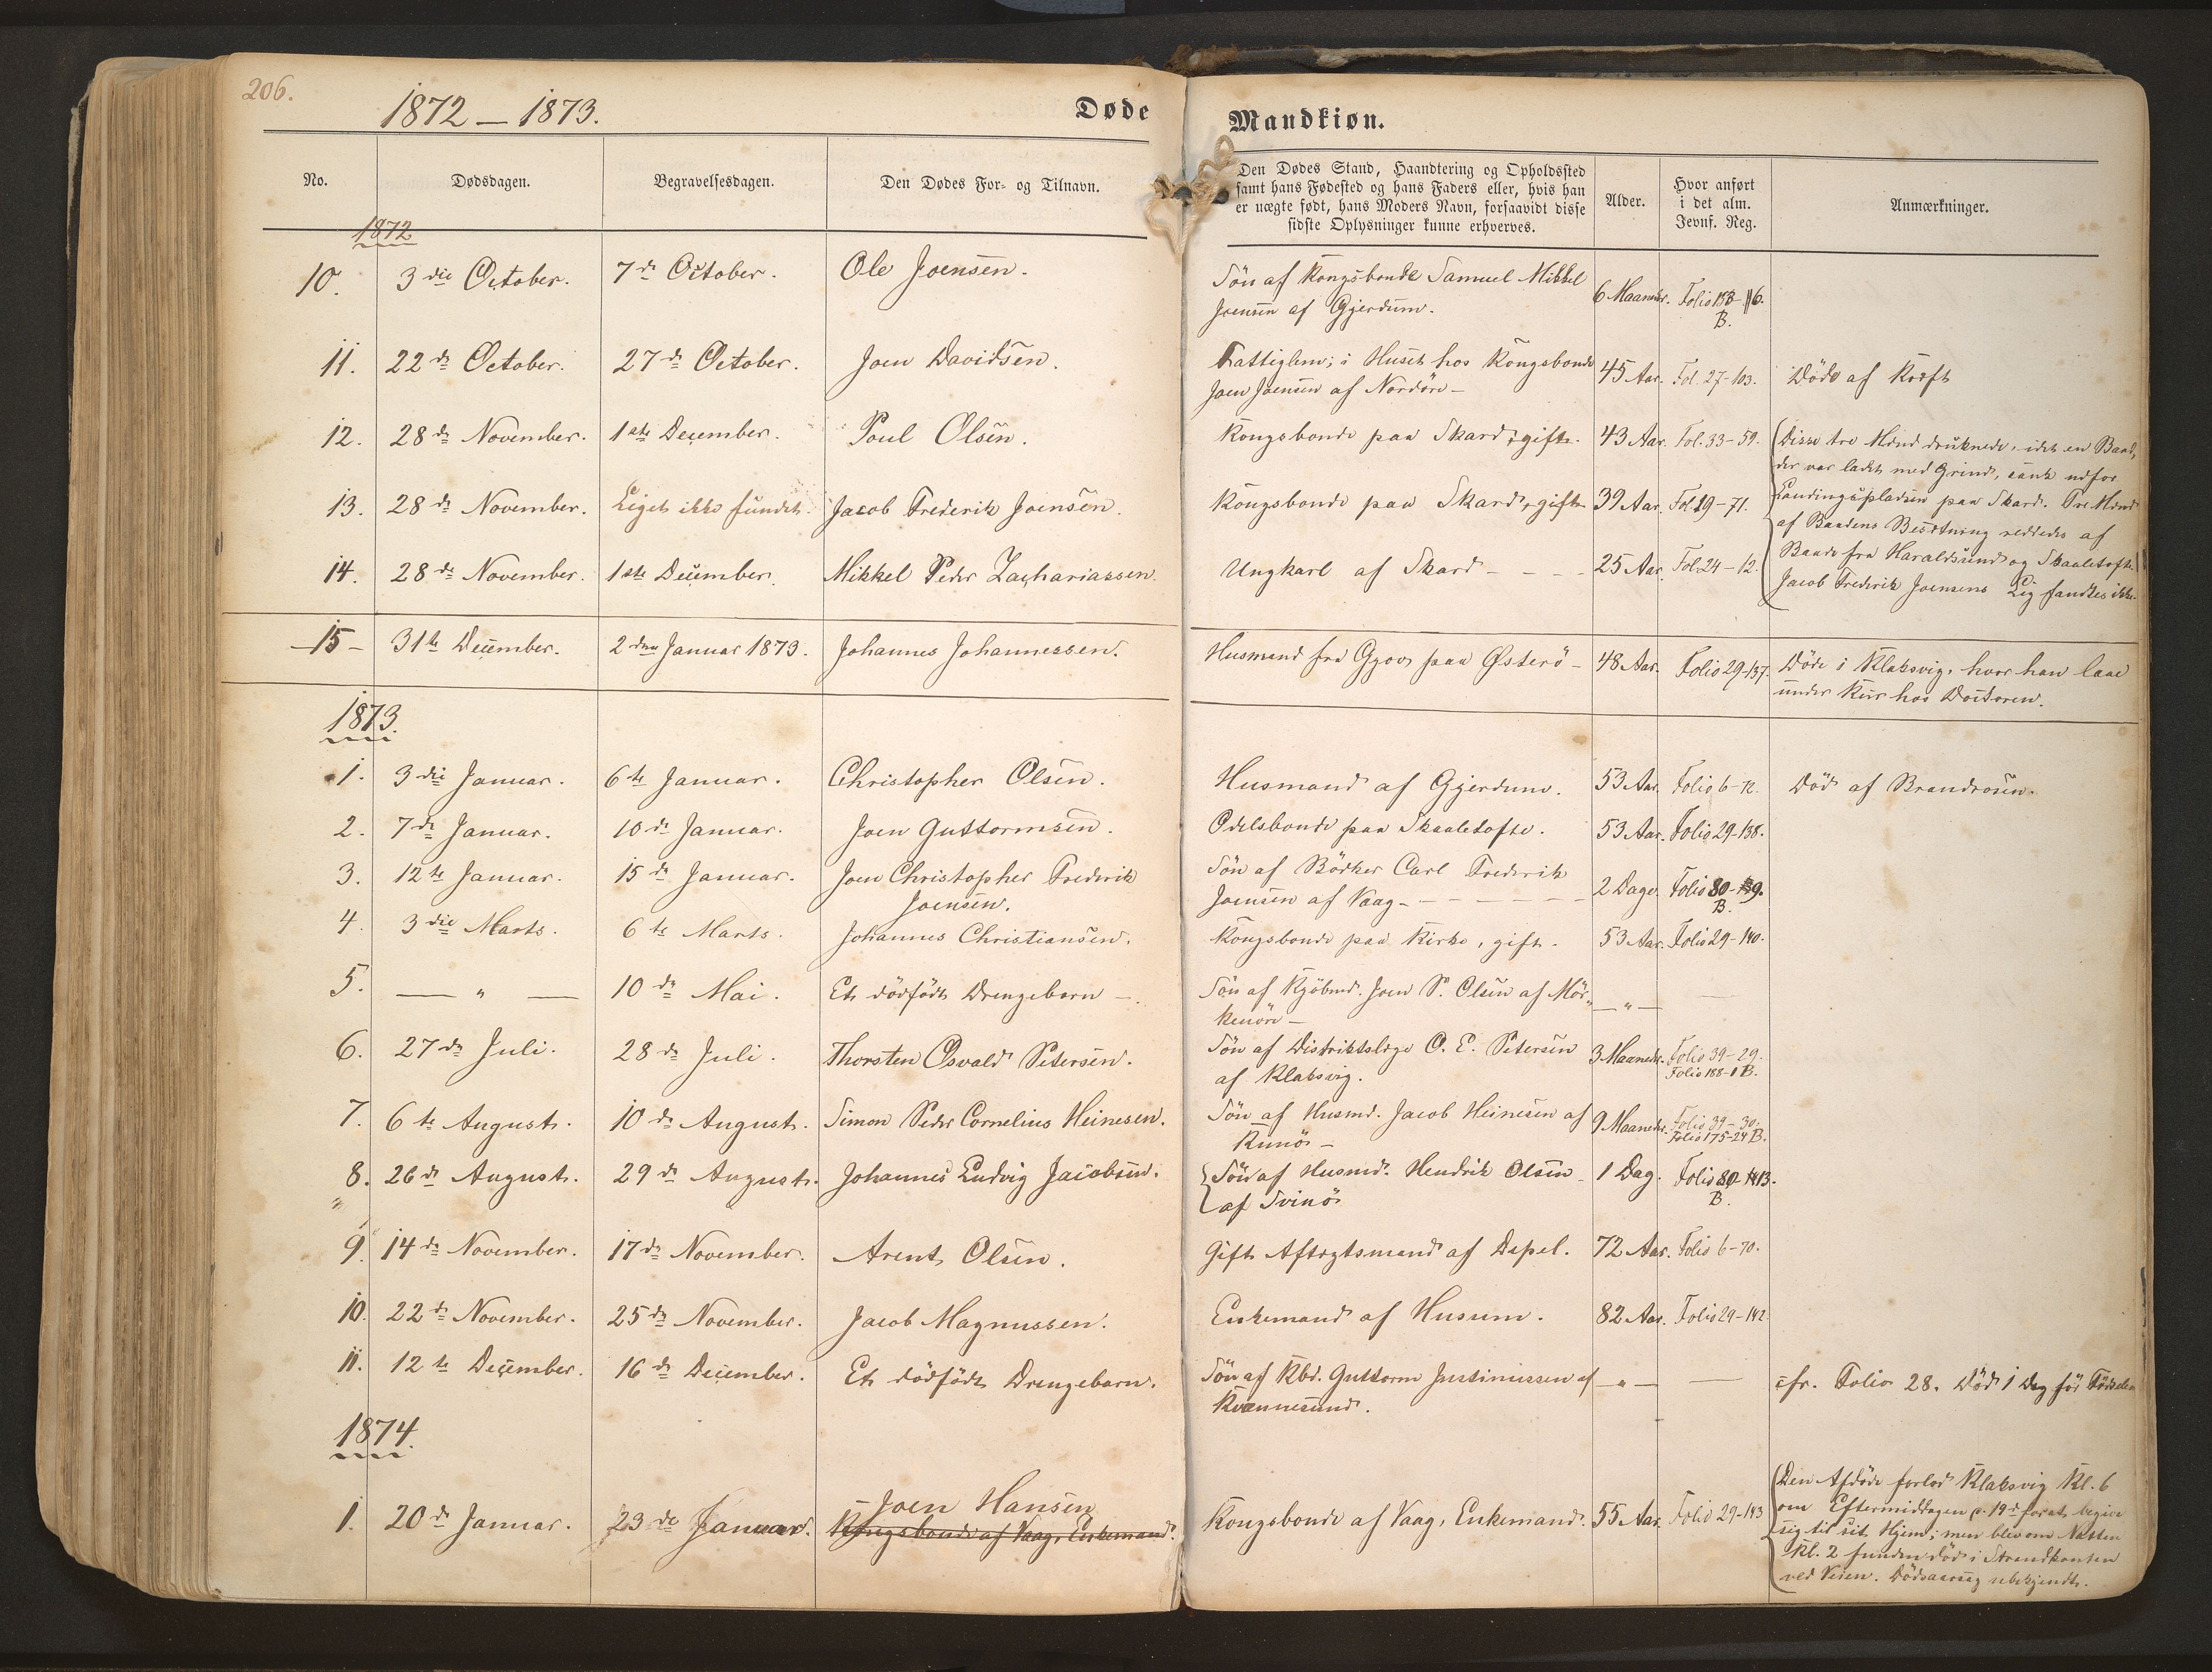 206.
1872 — 1873.
Døde
Mandkiøn.
No.
Dødsdagen.
Begravelsesdagen.
Den Dødes For- og Tilnavn.
Den Dødes Stand, Haandtering og Opholdssted
samt hans Fødested og hans Faders eller, hvis han
er uægte født, hans Moders Navn, forsaavidt disse
sidste Oplysninger kunne erhverves.
Alder.
Hvor anført
i det alm.
Jevnf. Reg.
Anmærkninger.
1872
10. 3die October. 7de October. Ole Joensen. Søn af Kongsbonde Samuel Mikkel 6 Maaneder. Folio 158-116.
Joensen af Gjerdum. B.
11. 22de October. 27de October. Joen Davidsen. Fattiglem; i Huset hos Kongsbonde 45 Aar. Fol. 27-103. Døde af Kræft
Joen Joensen af Nordøre —
12. 28de November. 1ste December. Poul Olsen. Kongsbonde paa Skard, gift. 43 Aar. Fol. 33-59. Disse tre Mænd druknede, idet en Baad,
der var ladet med Grind, sank udfor
13. 28de November. Liget ikke fundet. Jacob Frederik Joensen. Kongsbonde paa Skard, gift 39 Aar. Fol. 19-71. Landingspladsen paa Skard. Tre Mænd
af Baadens Besætning reddedes af
14. 28de November. 1ste December. Mikkel Peder Zachariassen. Ungkarl af Skard - - - 25 Aar. Fol. 24-12. Baade fra Haraldsund og Skaaletofte.
Jacob Frederik Joensens Lig fandtes ikke.
15 31te December. 2den Januar 1873. Johannes Johannessen. Husmand fra Gjov paa Østerø - 48 Aar. Folio 29-137. Døde i Klaksvig, hvor han laae
under Kur hos Doctoren.
1873.
1. 3die Januar. 6te Januar. Christopher Olsen. Husmand af Gjerdum. 53 Aar. Folio 6-72. Død af Brandrosen.
2. 7de Januar. 10de Januar. Joen Guttormsen. Odelsbonde paa Skaaletofte. 53 Aar. Folio 29-138.
3. 12te Januar. 15de Januar. Joen Christopher Frederik Søn af Bødker Carl Frederik
Joensen. Joensen af Vaag - - - 2 Dage. Folio 80- B.
4. 3die Marts. 6te Marts. Johannes Christiansen. Kongsbonde paa Kirke, gift. 53 Aar. Folio 29-140.
5. — " — 10de Mai. Et dødfødt Drengebarn — Søn af Kjøbmd. Joen P. Olsen af Mør- — " — —
kenøre —
6. 27de Juli. 28de Juli. Thorsten Osvald Petersen. Søn af Distriktslæge O. E. Petersen 3 Maaneder. Folio 39-29.
af Klaksvig. Folio 188-1 B.
7. 6te August. 10de August. Simon Peder Cornelius Heinesen. Søn af Husmd. Jacob Heinesen af 9 Maaneder. Folio 39-30.
Kunø — Folio 175-24 B.
8. 26de August. 29de August. Johannes Ludvig Jacobsen. Søn af Husmd. Hendrik Olsen 1 Dag. Folio 80-
af Svinø B.
9. 14de November. 17de November. Arent Olsen. Gift Aftægtsmand af Depel. 72 Aar. Folio 6-70.
10. 22de November. 25de November. Jacob Magnussen. Enkemand af Husum. 82 Aar. Folio 29-142.
11. 12te December. 16de December. Et dødfødt Drengebarn. Søn af Kbd. Guttorm Justinussen af — " — — cfr. Folio 28. Død 1 Dag før Fødselen
Kvannesund.
1874.
1. 20de Januar. 23de Januar. Joen Hansen Kongsbonde af Vaag, Enkemand. 55 Aar. Folio 29-143
Kongsbonde af Vaag, Enkemand.
Den Afdøde forlod Klaksvig Kl. 6
om Eftermiddagen d. 19de forat begive
sig til sit Hjem; men blev om Natten
Kl. 2 funden død i Strandkanten
ved Veien. Dødsaarsag ubekjendt.